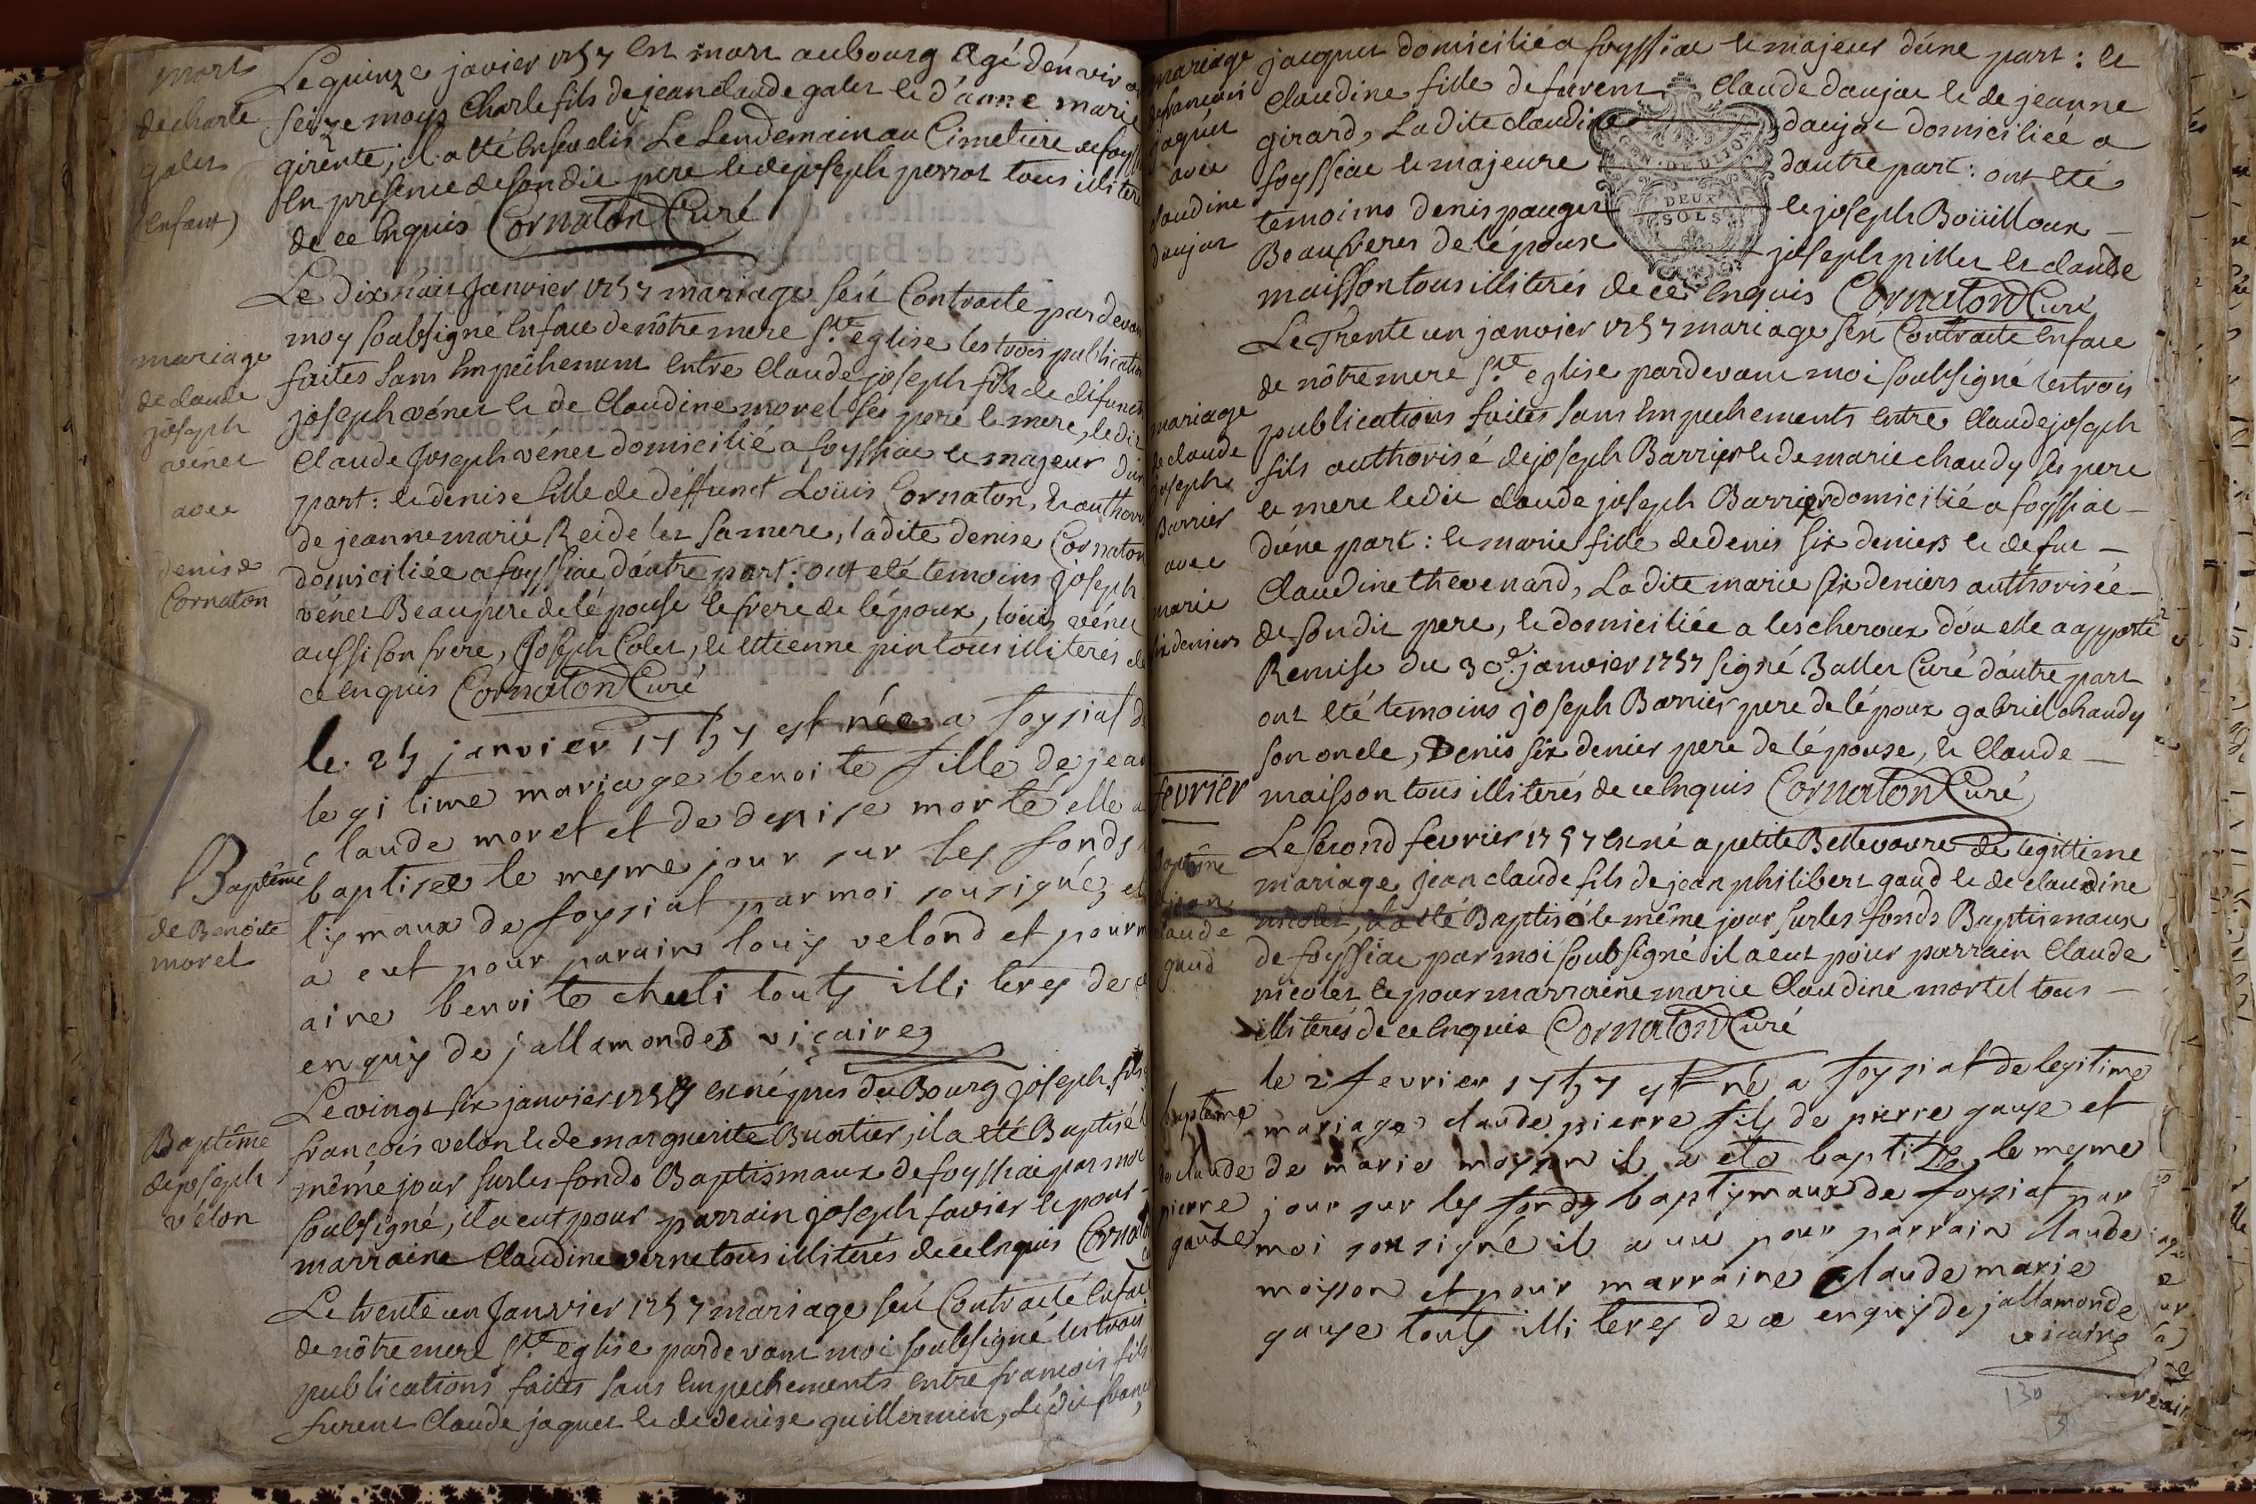 mort
de charle
galet
(enfant)
Le quinze javier 1757 est mort au bourg agé d'énviron
seize moys Charle fils de jean claude galet et d'anne marie
girente, il a été enseveli Le Lendemain au Cimetiere de
en presence de son dit pere et de joseph perrot tous illiterés
de ce enquis Cornaton Curé
mariage
de claude
joseph
vénet
avec
denise
Cornaton
Le Dix huit Janvier 1757 mariage feû Contracté pardevant
moy soubsigné en face de nôtre mere Ste église les trois publications
faites sans empêchement entre Claude joseph fils de défunct
joseph vénet et de Claudine morel ses pere et mere, ledit
Claude Joseph vénet domicilié a foyssiac et majeur d'un
part: et denise fille de deffunct Loüis Cornaton, et authori
de jeanne marie Reidelet sa mere, ladite denise Cornaton
domiciliée a foyssiac d'aûtre part: ont eté temoins joseph
vénet Beaupere de lépouse et frere de lépoux, loüis vénet
aussi son frere, Joseph Colet, et ettienne pin toûs illiterés de
ce enquis Cornaton Curé
Baptême
de Benoite
morel
le 25 janvier 1757 est née a foysiat de
legitime mariage benoite fille de jean
claude morel et de denise morté elle a
baptisée le mesme jour sur les fonds
tismaux de foysiat par moi sousignéz el
a eut pour parain louis velond et pour m
aine benoite chuli touts illiteres de ce
enquis de jallamondes vicaire
Baptême
de joseph
vélon
Le vingt six janvier 1757 est né pres du Bourg joseph fils
françois velon et de marguerite Buatier, il a eté Baptisé le
même jour sur les fonds Baptismaux de foyssiac par moi
soubsigné, il a eut pour parrain joseph favier et pour
marraine Claudine verne tous illiterés de ce enquis Cornaton
Le trente un Janvier 1757 mariage feû Contracté en face
de nôtre mere Ste église pardevant moi soubsigné les trois
publications faites sans empechements entre francois fils
furent Claude jaquet et de denise guillermin, Ledit franc
mariage
de francois
jaquet
avec
claudine
daujat
jacquet domicilié a foyssiac et majeur d'une part: et
Claudine fille de furent Claude daujat et de jeanne
girard, Ladite claudine daujat domiciliée a
foyssiac et majeure d'autre part: ont eté
temoins denis pauget et joseph Boüilloux
Beaufreres de lépoux joseph pillet et claude
maisson tous illiterés de ce enquis Cornaton Curé
GEN. DE DIJON
DEUX
SOLS
mariage
de claude
joseph
Barrier
avec
marie
six deniers
Le Trente un janvier 1757 mariage feû Contracté en face
de nôtre mere Ste église pardevant moi soubsigné les trois
publications faites sans empechements entre Claude joseph
fils authorisé de joseph Barrier et de marie chaudy ses pere
et mere ledit claude joseph Barrier domicilié a foyssiac
d'une part: et marie fille de denis six deniers et de fue
Claudine thevenard, Ladite marie six deniers authorisée
de son dit pere, et domiciliée a lescheroux d'ou elle a apporté
Remise du 30e janvier 1757 signé Ballet Curé d'autre part
ont eté temoins joseph Barrier pere de lépoux gabriel chaudy
son oncle, Denis six denier pere de lépouse, et Claude
maisson tous illiterés de ce enquis Cornaton Curé
fevrier
Baptême
de jean
claude
gaud
Le second fevrier 1757 est né a petite Bellevavre de legittime
mariage jean claude fils de jean philibert gaud et de claudine
nicolet, il a eté Baptisé le même jour sur les fonds Baptismaux
de foyssiac par moi soubsigné il a eut pour parrain Claude
nicolet et pour marraine marie Claudine mortel tous
illiterés de ce enquis Cornaton Curé
baptême
de claude
pierre
gauze
le 2 fevrier 1757 est né a foysiat de legitime
mariage claude pierre fils de pierre gause et
de marie moyson il a eté baptizé le mesme
jour sur les fonds baptismaux de foysiat par
moi sousigné il a uü pour parrain claude
moisson et pour marraine claude marie
gause touts illiteres de ce enquis de jallamonde
vicaire
130